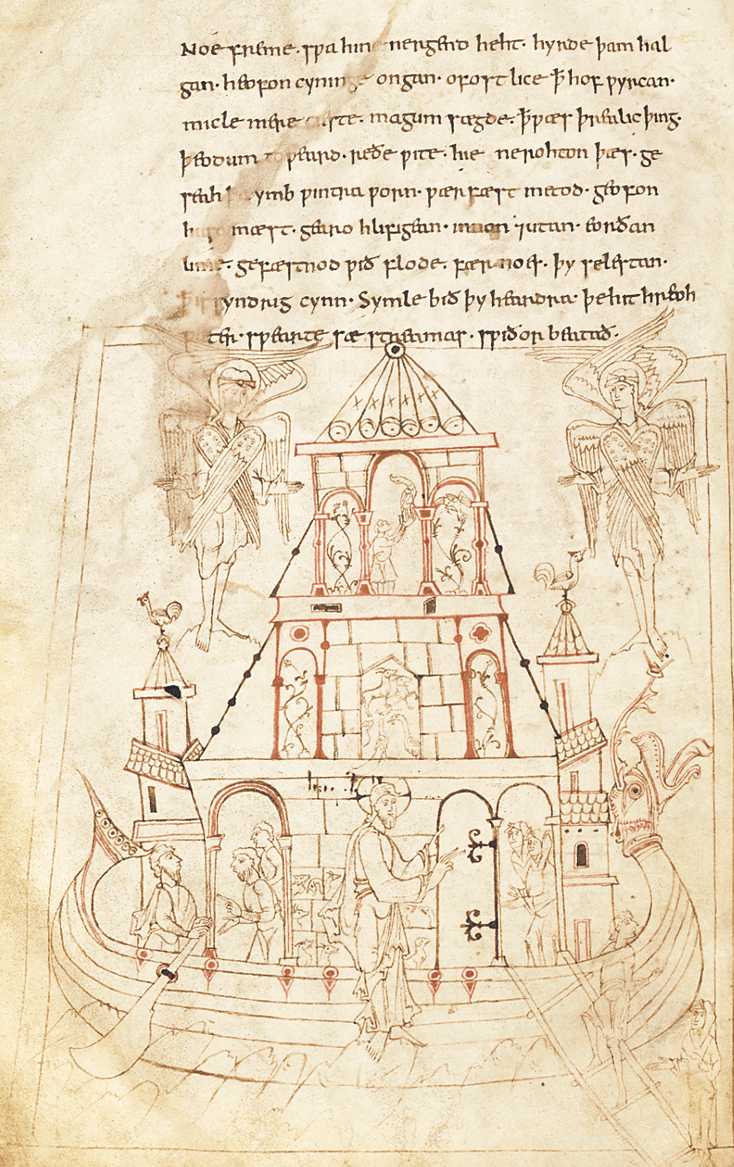 Noe freme· sƿa hine nergend heht· hyrde þam hal
gan· heofon cyninge ongan· ofost lice ꝥ hof ƿyrcan·
micle mere ciste· magum sægde· ꝥ ƿæs þrealic þing·
þeodum toƿeard· reðe ƿite· hie ne rohton þæs· ge
seah þa ymb ƿintra ƿorn· ƿærfæst metod· geofon
husa mæst· gearo hlifigean· innan ⁊utan· eorðan
lime· gefæstnod ƿið flode· fær noes· þy selestan·
ꝥ is syndrig cynn· Symle bið þy heardra· þe hit hreoh
ƿæter· sƿearte sæ streamas· sƿiðor beatað·